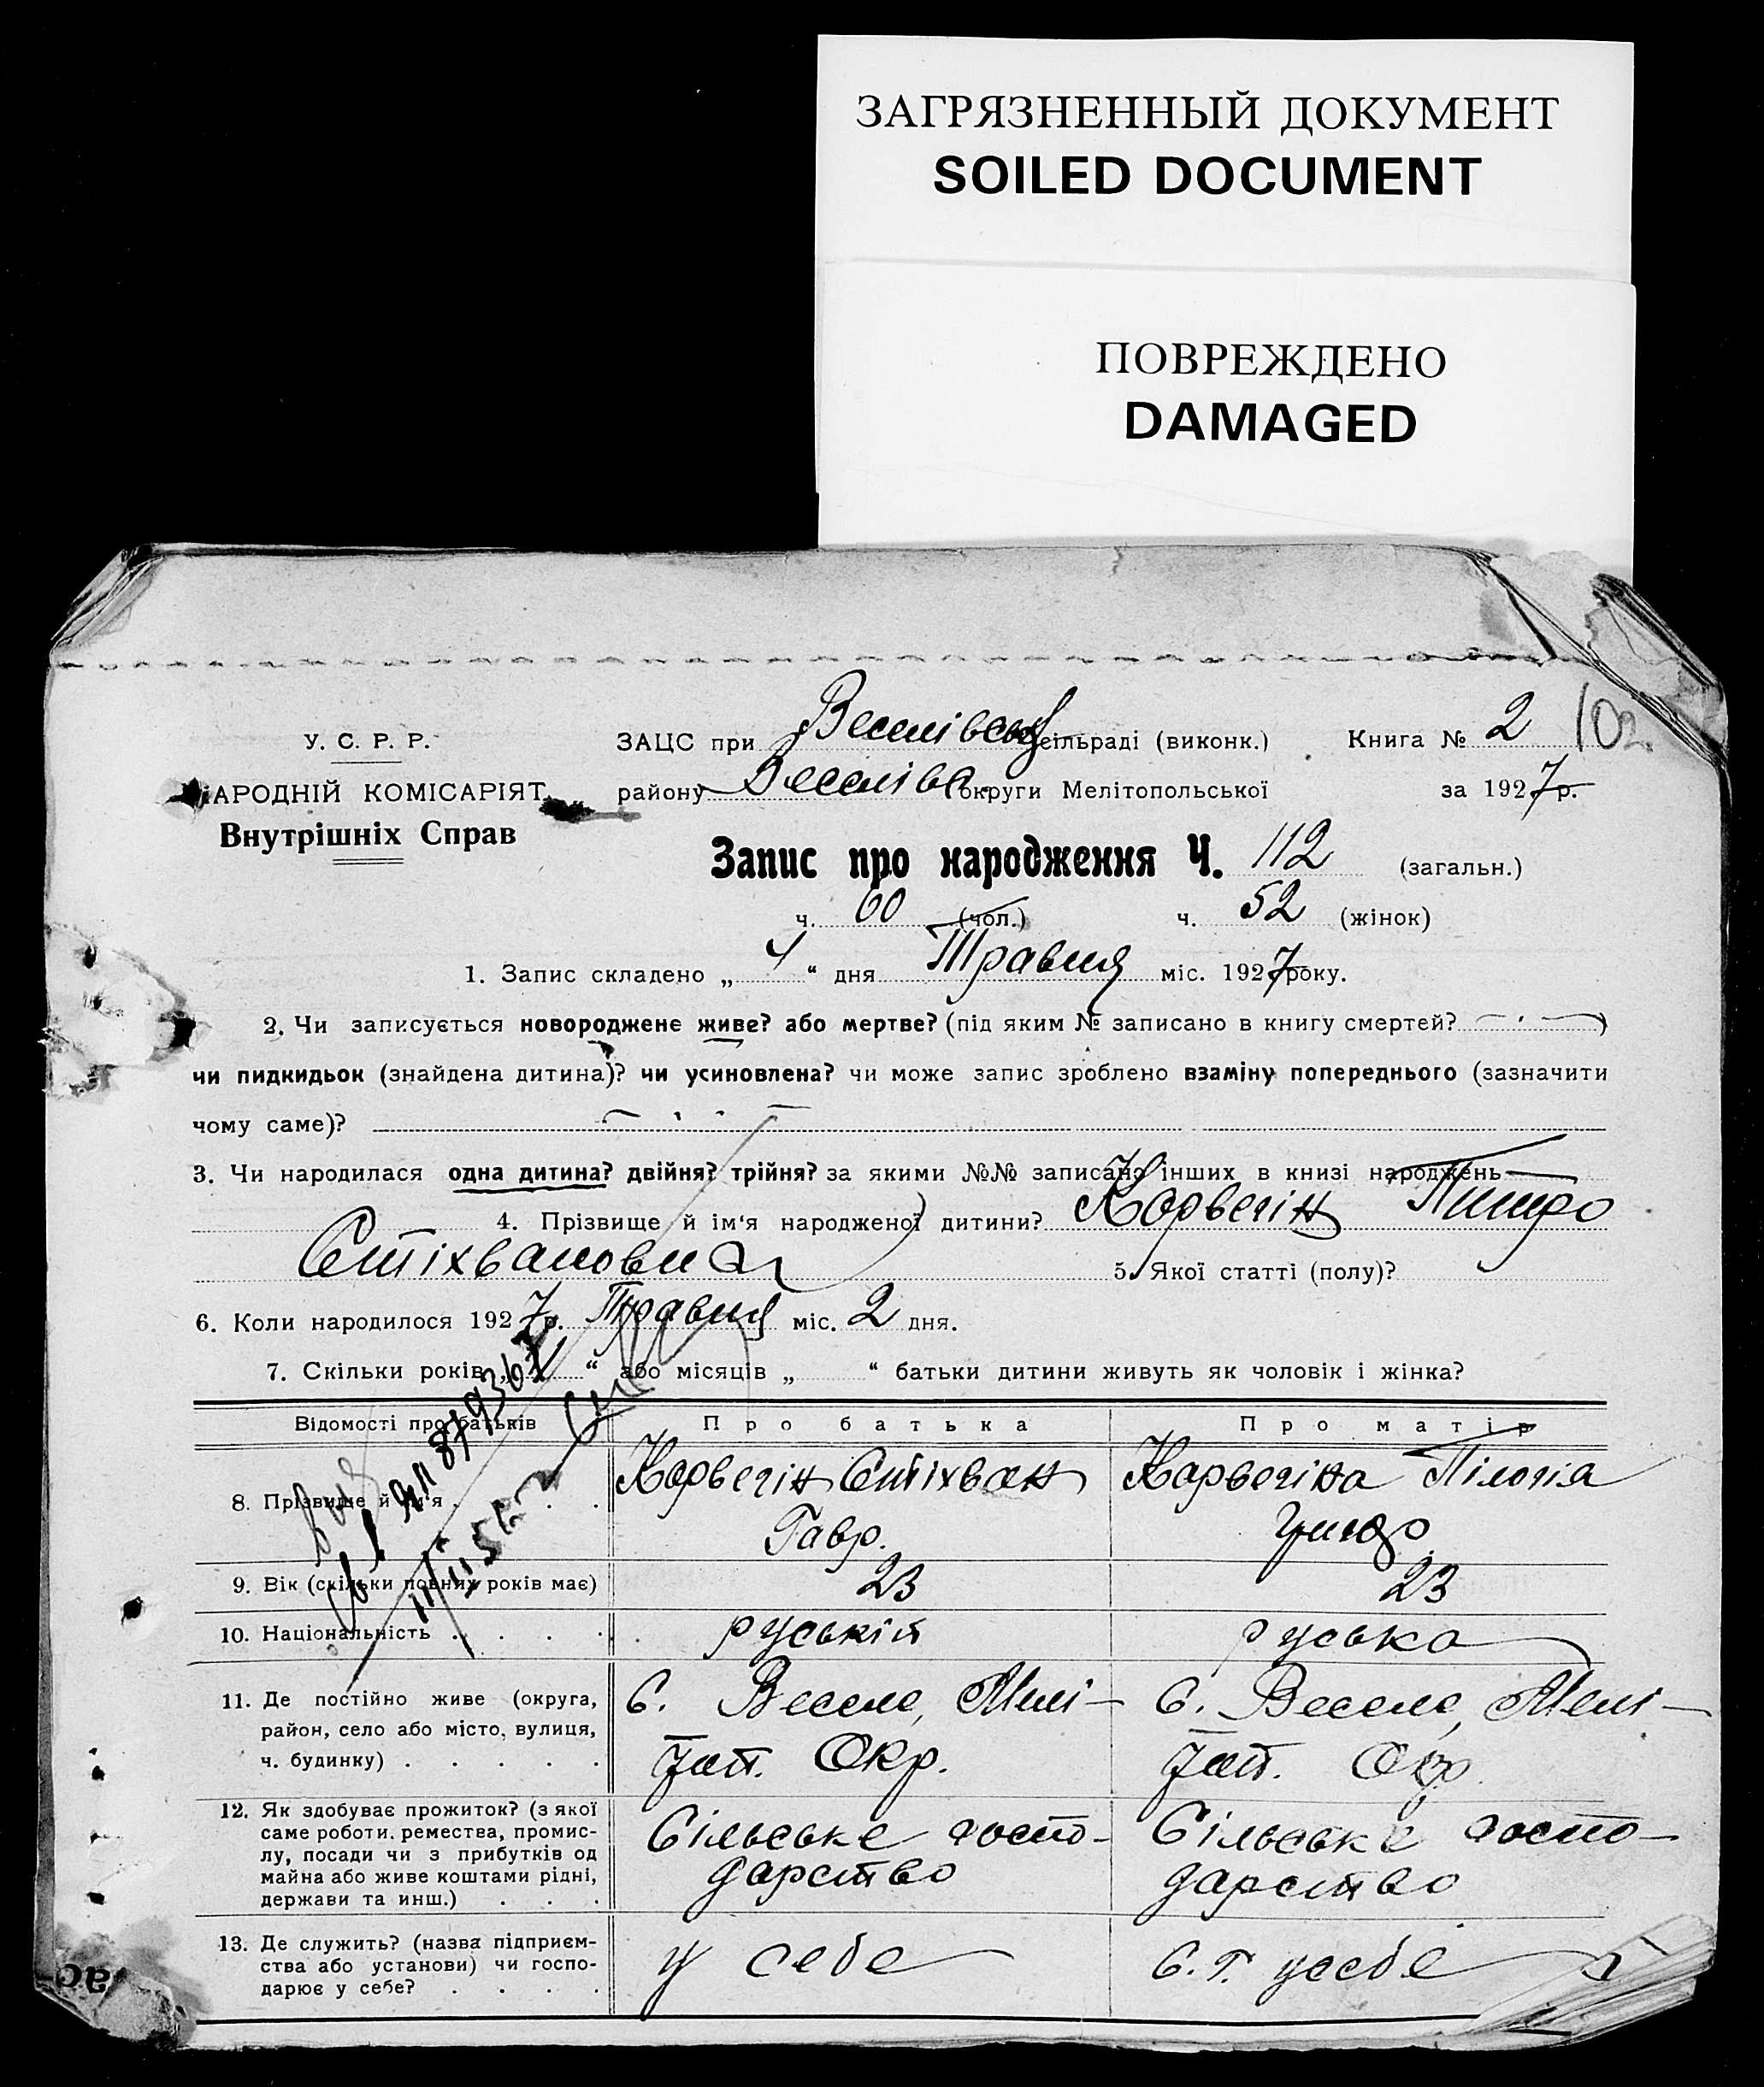 ЗАГРЯЗНЕННЫЙ ДОКУМЕНТ
SOILED DOCUMENT
ПОВРЕЖДЕНО
DAMAGED
У. С. Р. Р.
НАРОДНІЙ КОМІСАРІЯТ
Внутрішніх Справ
ЗАЦС при Веселівськ сільраді (виконк.) Книга № 2 102
району Веселівс. округи Мелітопольської за 1927 р.
Запис про народження Ч. 112 (загальн.)
ч. 60 (чол.) ч. 52 (жінок)
1. Запис складено „ 4 “ дня Травня міс. 1927 року.
2. Чи записується новороджене живе? або мертве? (під яким № записано в книгу смертей? )
чи пидкидьок (знайдена дитина)? чи усиновлена? чи може запис зроблено взаміну попереднього (зазначити
чому саме)?
3. Чи народилася одна дитина? двійня? трійня? за якими №№ записано інших в книзі народжень
4. Прізвище й ім‘я народженої дитини? Карвегін
Стіхванович 5. Якої статті (полу)?
6. Коли народилося 1927 р. Травня міс. 2 дня.
7. Скільки років „ “ або місяців „ “ батьки дитини живуть як чоловік і жінка?
Відомості про батьків Про батька Про матір
8. Прізвище й ім‘я . . . Карвегін Стіхван Карвегіна
Гавр.
9. Вік (скільки повних років має) 23 23
10. Національність . . . . руській руська
11. Де постійно живе (округа, район, село або місто, вулиця, ч. будинку) . . . . .
С. Веселе, Мелі- С. Веселе, Мелі-
топ. Окр. топ. Окр.
12. Як здобуває прожиток? (з якої саме роботи, ремества, промис-
лу, посади чи з прибутків од
майна або живе коштами рідні,
держави та инш.) . . .
Сільське госпо- Сільське госпо-
дарство дарство
13. Де служить? (назва підприєм-
ства або установи) чи госпо-
дарює у себе? . . . .
у себе С. Г. у себе